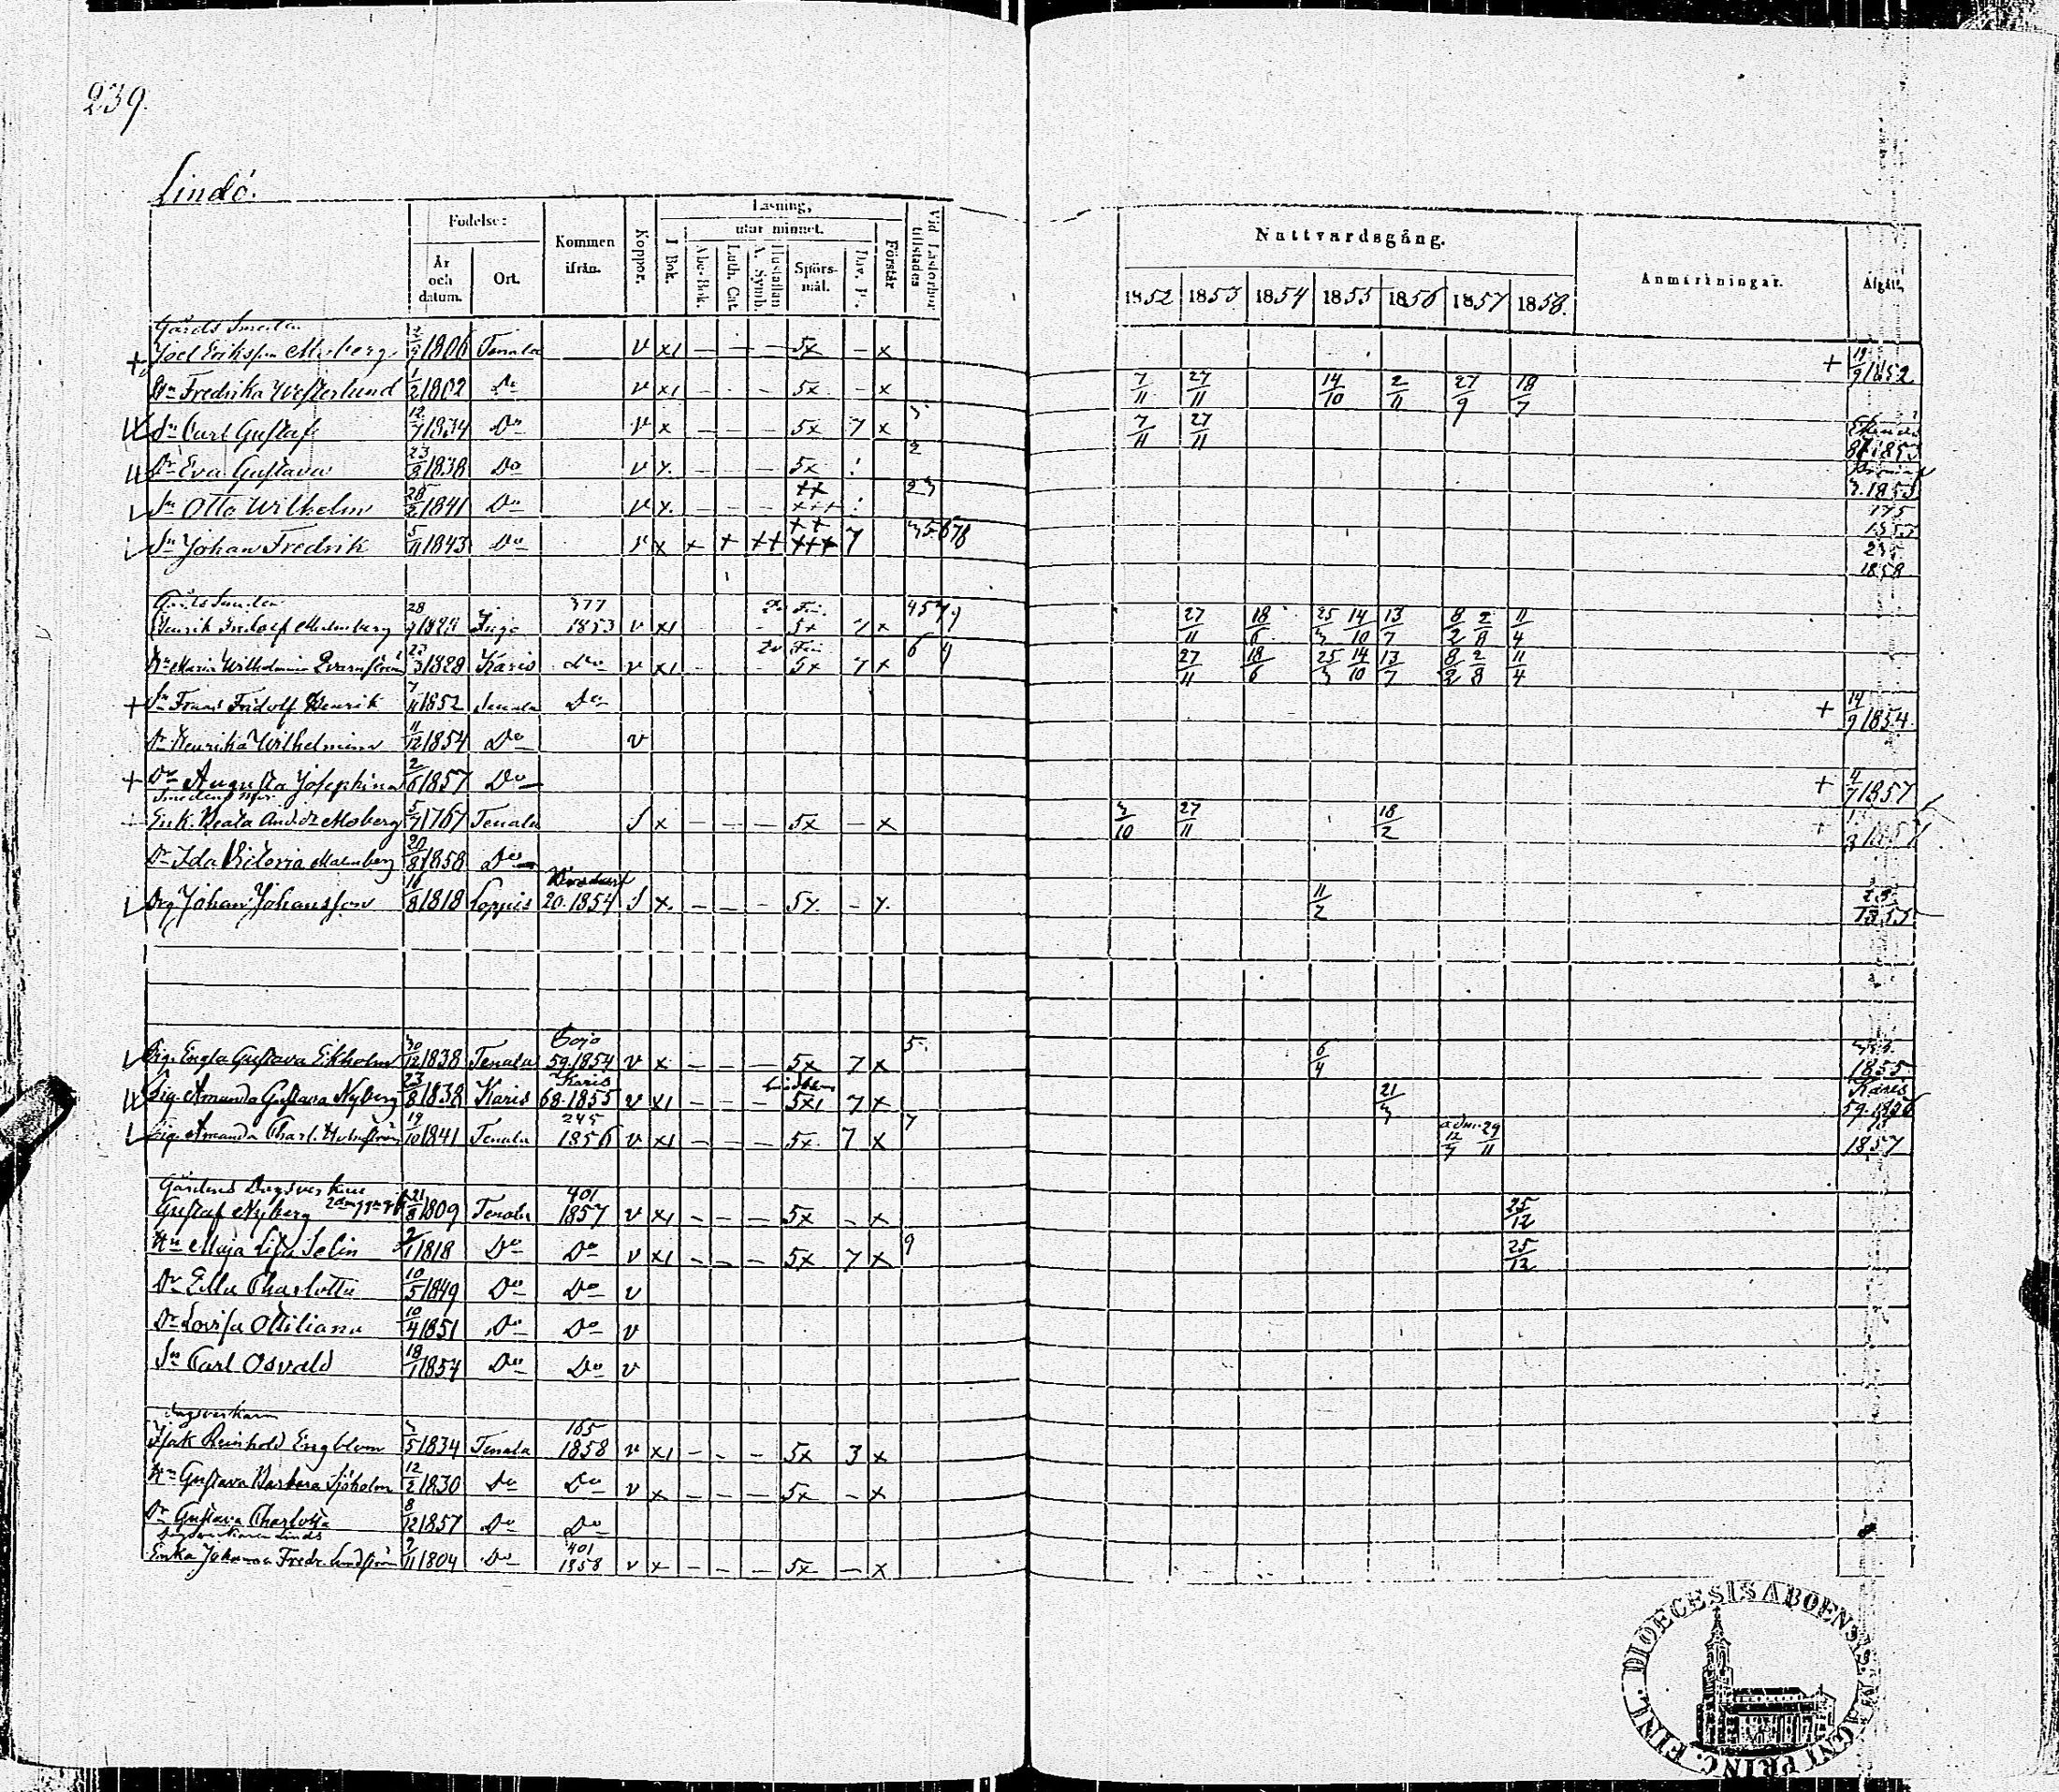 239.
Lindö.
Födelse: Kommen ifrån. Koppor. Läsning, Vid Läsförhör tillstädes
År och datum. Ort. I Bok. utur minnet. Förstår
Abc-Bok. Luth. Cat. Hustaflan A. Symb. Spörsmål. Dav. P.
Nattvardsgång. Anmärkningar. Afgått.
1852 1853 1854 1855 1856 1857 1858.
Gårds Smeden
+ Joel Eriksson Moberg 9 1806 Tenala v x1 — — — 5x — x + 19/9 1852
Hu Fredrika Westerlund 1/2 1802 Do v x1 — — — 5x — x 7/11 27/11 14/10 2/11 27/9 18/7
Sn Carl Gustaf 12/7 1834 Do v x — — — 5x 7 x 3 7/11 27/11
Dr Eva Gustava 23/8 1838 Do v x — — — 5x 2
Sn Otto Wilhelm 28/2 1841 Do v x — — — ++ +++ 23 175 1855
Sn Johan Fredrik 5/11 1843 Do x + + ++ ++ +++ 7 35678 1858
Gårds Smeden 377
Henrik Fredolf Malmberg 28 Ingo 1853 v x1 5x 7 x 27/11 18/6 25/3 14/10 13/7 8/2 2/8 11/4
Hu Maria Wilhelmina 23/3 1828 Karis Do v x1 5x 7 x 27/11 18/6 25/3 14/10 13/7 8/2 2/8 11/4
+ Sn Frans Fridolf Henrik 7/11 1852 Tenala Do + 14/9 1854
Dr Henrika Wilhelmina 11/12 1854 Do v
+ Dr Augusta Josephina 2/6 1857 Do + 4/7 1857
Smedens mor
Enk. Beata Moberg 5/7 1767 Tenala S x — — — 5x — x 3/10 27/11 18/2 + 1857
Dr Ida Victoria Malmberg 20/8 1858 Do
Drg Johan Johansson 16/8 1818 Loppis 20. 1854 S x — — — 5x — x 11/2 1855
Pig. Engla Gustava Ekholm 30/12 1838 Tenala Pojo 59. 1854 v x — — — 5x 7 x 5 6/4 1855
Pig. Amanda Gustava Nyberg 23/8 1838 Karis Karis 68. 1855 v x1 — — — 5x1 7 x 21/3 Karis 59. 1856
Pig. Amanda Charl. 19/10 1841 Tenala 245 1856 v x1 — — — 5x 7 x 7 12/7 29/11 1857
Gårdens Dagsverkare
Gustaf Nyberg 21/8 1809 Tenala 401 1857 v x1 — — — 5x — x 25/12
Hu Maja Lisa Selin 1818 Do Do v x1 — — — 5x 7 x 9 25/12
Dr Edla Charlotta 10/5 1849 Do Do v
Dr Lovisa Ottiliana 10/4 1851 Do Do v
Sn Carl Osvald 18/1 1854 Do Do v
Dagsverkaren
Isak Reinhold Engblom 3/5 1834 Tenala 165 1858 v x1 — — — 5x 3 x
Hu Gustava Barbara Sjöholm 12/2 1830 Do Do v x — — — 5x — x
Dr Gustava Charlotta 8/12 1857 Do Do
Enka Johanna Fredr. Lindström 9/11 1804 Do 401 1858 v x — — — 5x — x
DIOECESIS ABOENSIS. MAGNI PRINC. FINL.